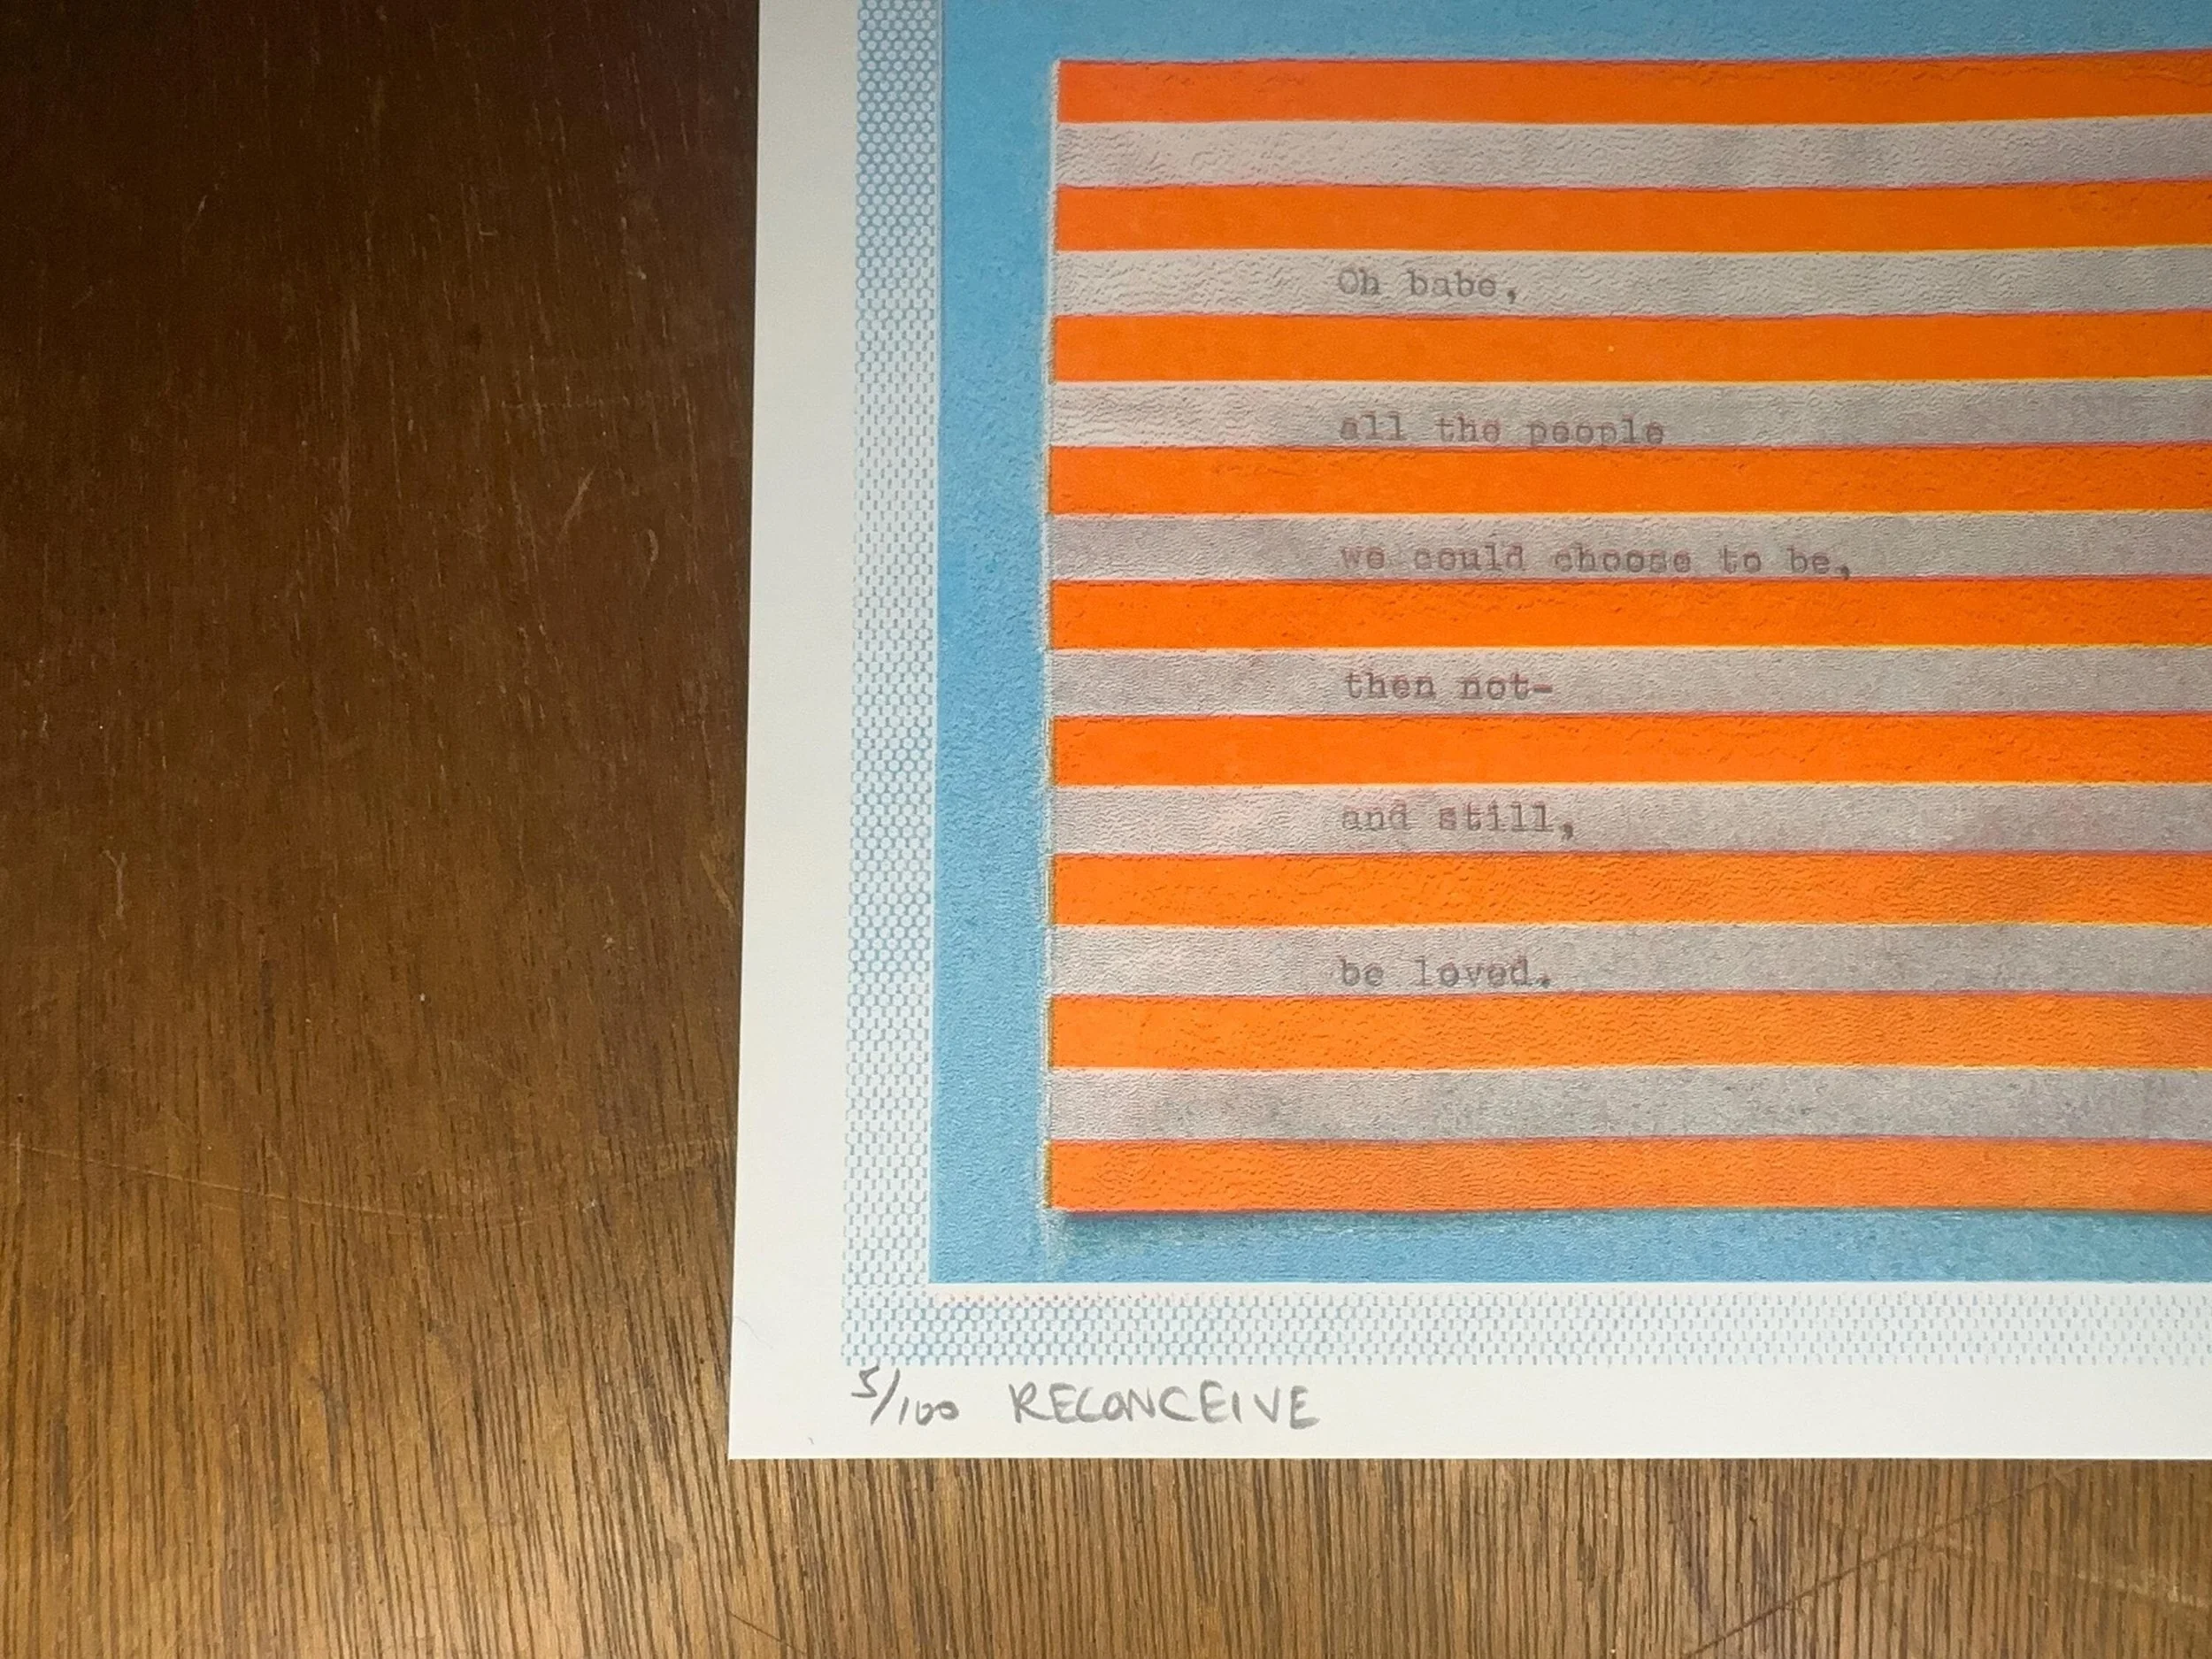 Oh babe,
all the people
we could choose to be,
then not-
and still,
be loved.
5/100 RECONCEIVE